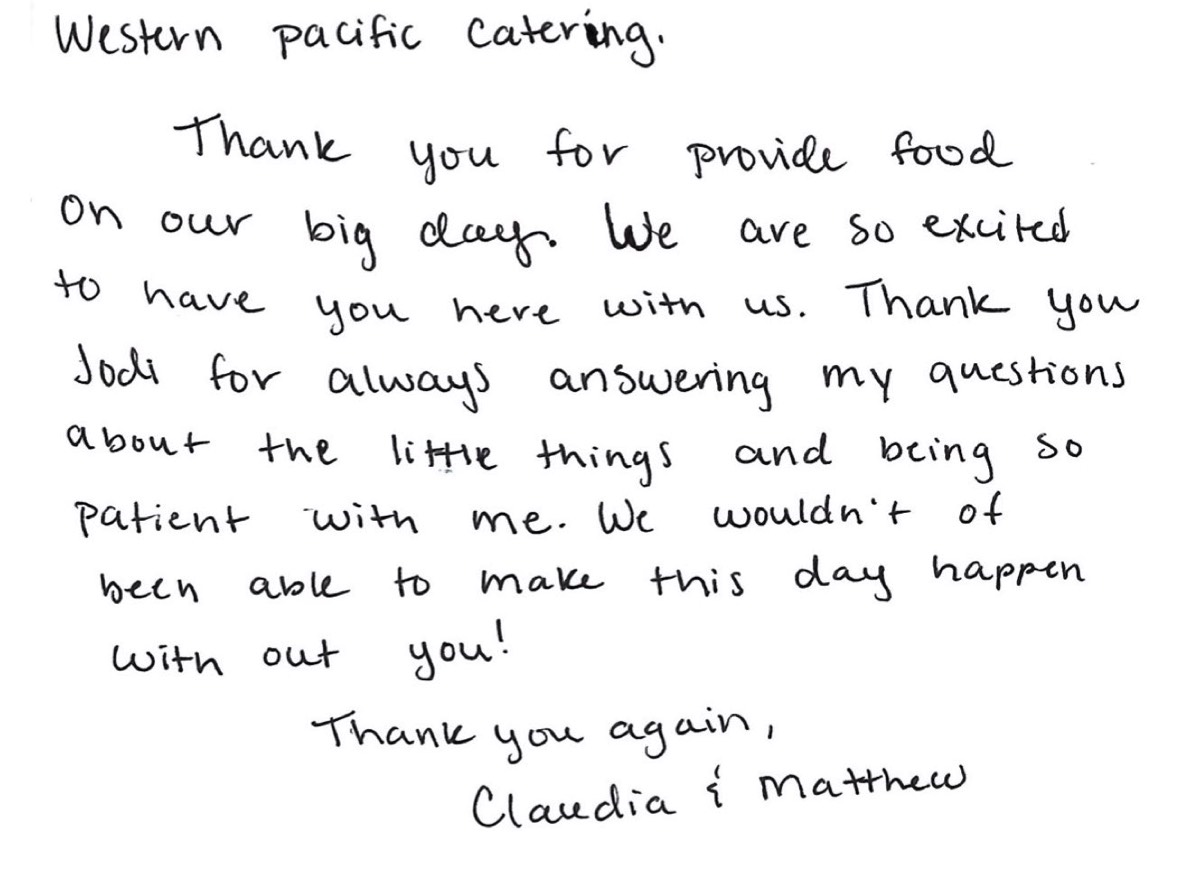 Western pacific catering.
Thank you for provide food
on our big day. We are so excited
to have you here with us. Thank you
Jodi for always answering my questions
about the little things and being so
patient with me. We wouldn't of
been able to make this day happen
with out you!
Thank you again,
Claudia & Matthew